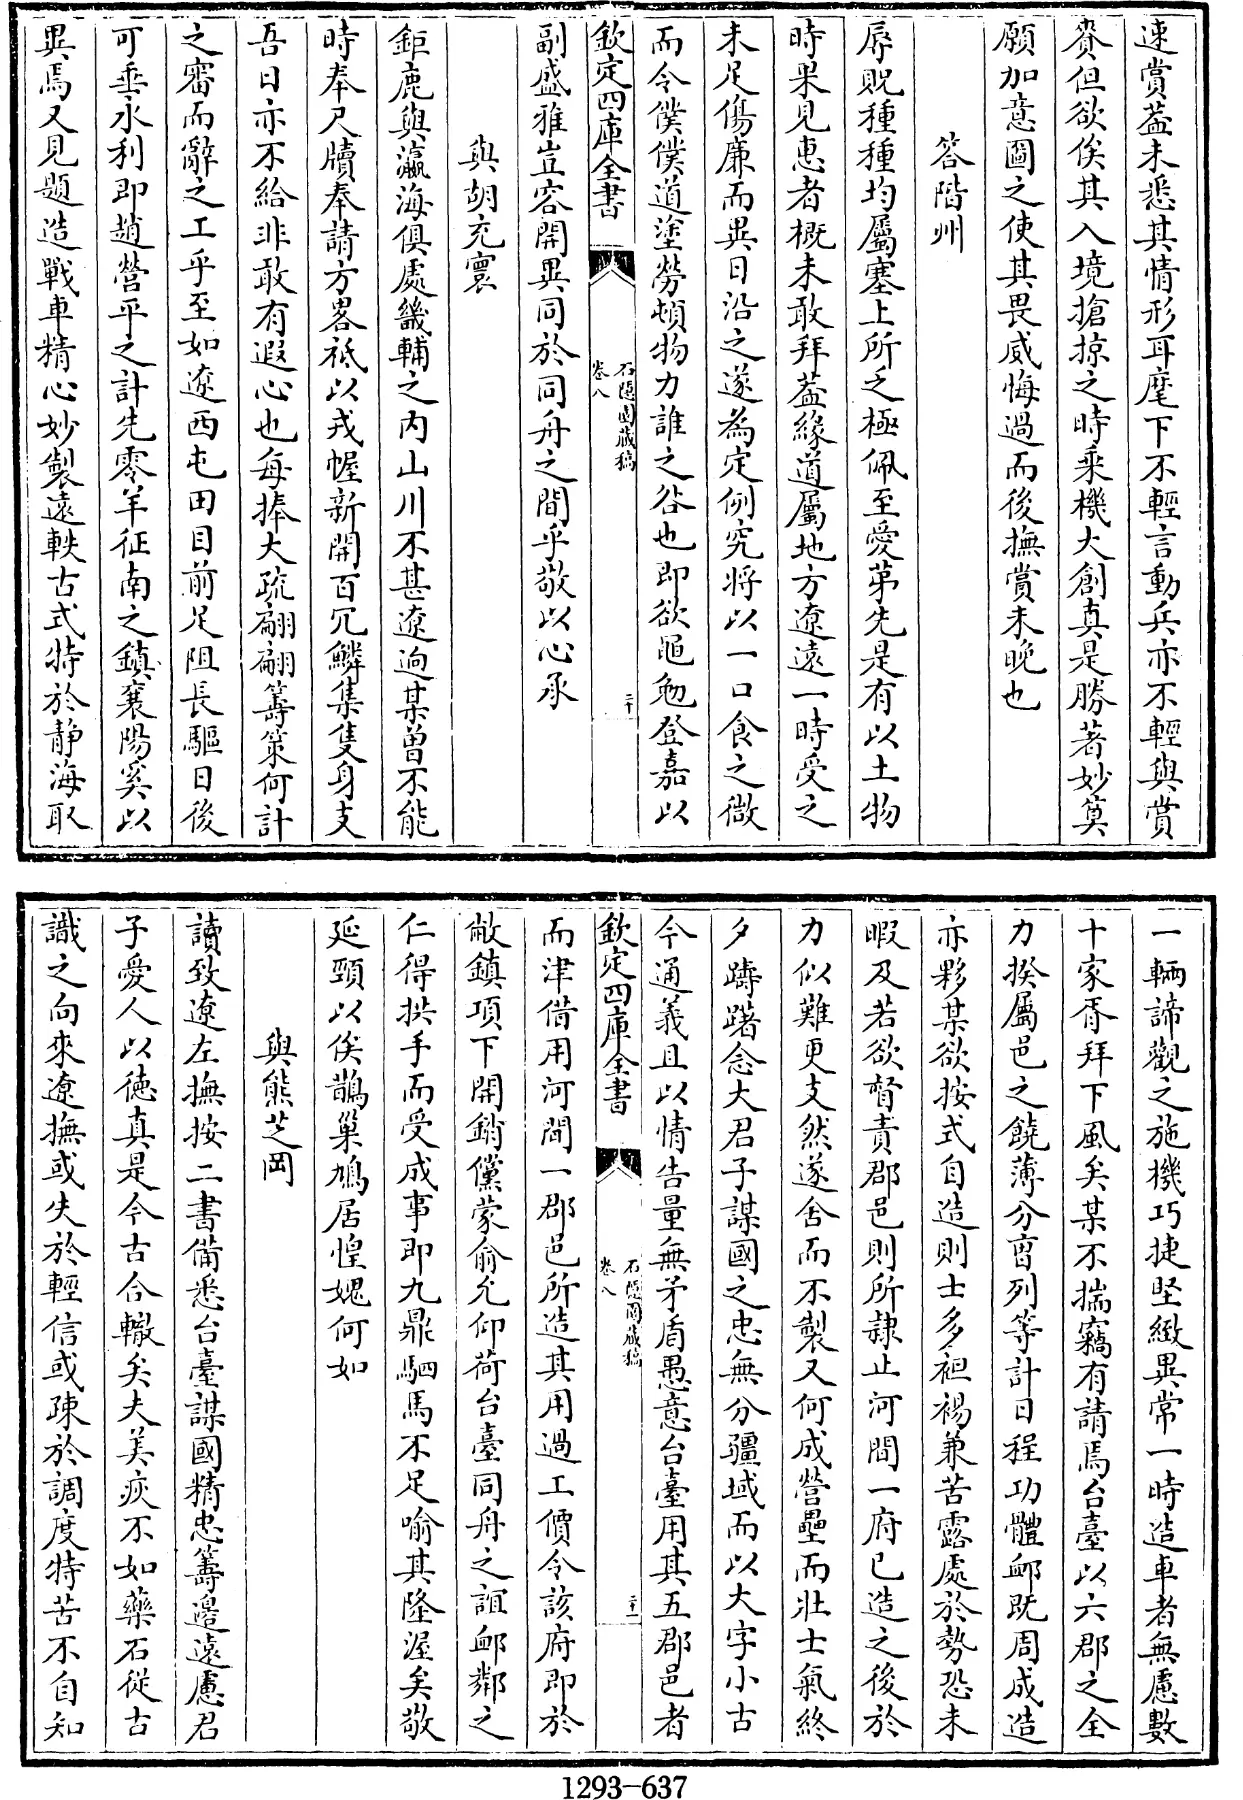 速賞葢未悉其情形耳麾下不輕言動兵亦不輕與賞
賚但欲俟其入境搶掠之時乘機大創真是勝著妙筭
願加意圖之使其畏威悔過而後撫賞未晚也
答階州
辱貺種種均屬塞上所乏極佩至愛第先是有以土物
時果見惠者概未敢拜葢緣道屬地方遼遠一時受之
未足傷廉而異日沿之遂為定例究將以一口食之微
而令僕僕道塗勞頓物力誰之咎也即欲黽勉登嘉以
欽定四庫全書
石隱園藏稿
卷八
二十
副盛雅豈容開異同於同舟之間乎敬以心承
與胡充寰
鉅鹿與瀛海俱處畿輔之內山川不甚遼逈某曽不能
時奉尺牘奉請方畧祗以戎幄新開百冗鱗集隻身支
吾日亦不給非敢有遐心也每捧大疏翩翩籌策何計
之審而辭之工乎至如遼西屯田目前足阻長驅日後
可垂永利即趙營平之計先零羊征南之鎮襄陽奚以
異焉又見題造戰車精心妙製遠軼古式特於静海取
一輛諦觀之施機巧捷堅緻異常一時造車者無慮數
十家胥拜下風矣某不揣竊有請焉台臺以六郡之全
力揆屬邑之饒薄分畨列等計日程功體䘏既周成造
亦夥某欲按式自造則士多袒裼兼苦露處於勢恐未
暇及若欲督責郡邑則所隷止河間一府已造之後於
力似難更支然遂舍而不製又何成營壘而壯士氣終
夕躊躇念大君子謀國之忠無分疆域而以大字小古
今通義且以情告量無矛盾愚意台臺用其五郡邑者
欽定四庫全書
石隱園藏稿
卷八
二十一
而津借用河間一郡邑所造其用過工價令該府即於
敝鎮項下開銷儻蒙俞允仰荷台臺同舟之誼䘏鄰之
仁得拱手而受成事即九鼎駟馬不足喻其隆渥矣敬
延頸以俟鵲巢鳩居惶媿何如
與熊芝岡
讀致遼左撫按二書備悉台臺謀國精忠籌邉遠慮君
子愛人以徳真是今古合轍矣夫美疢不如藥石從古
識之向來遼撫或失於輕信或疎於調度特苦不自知
1293-637